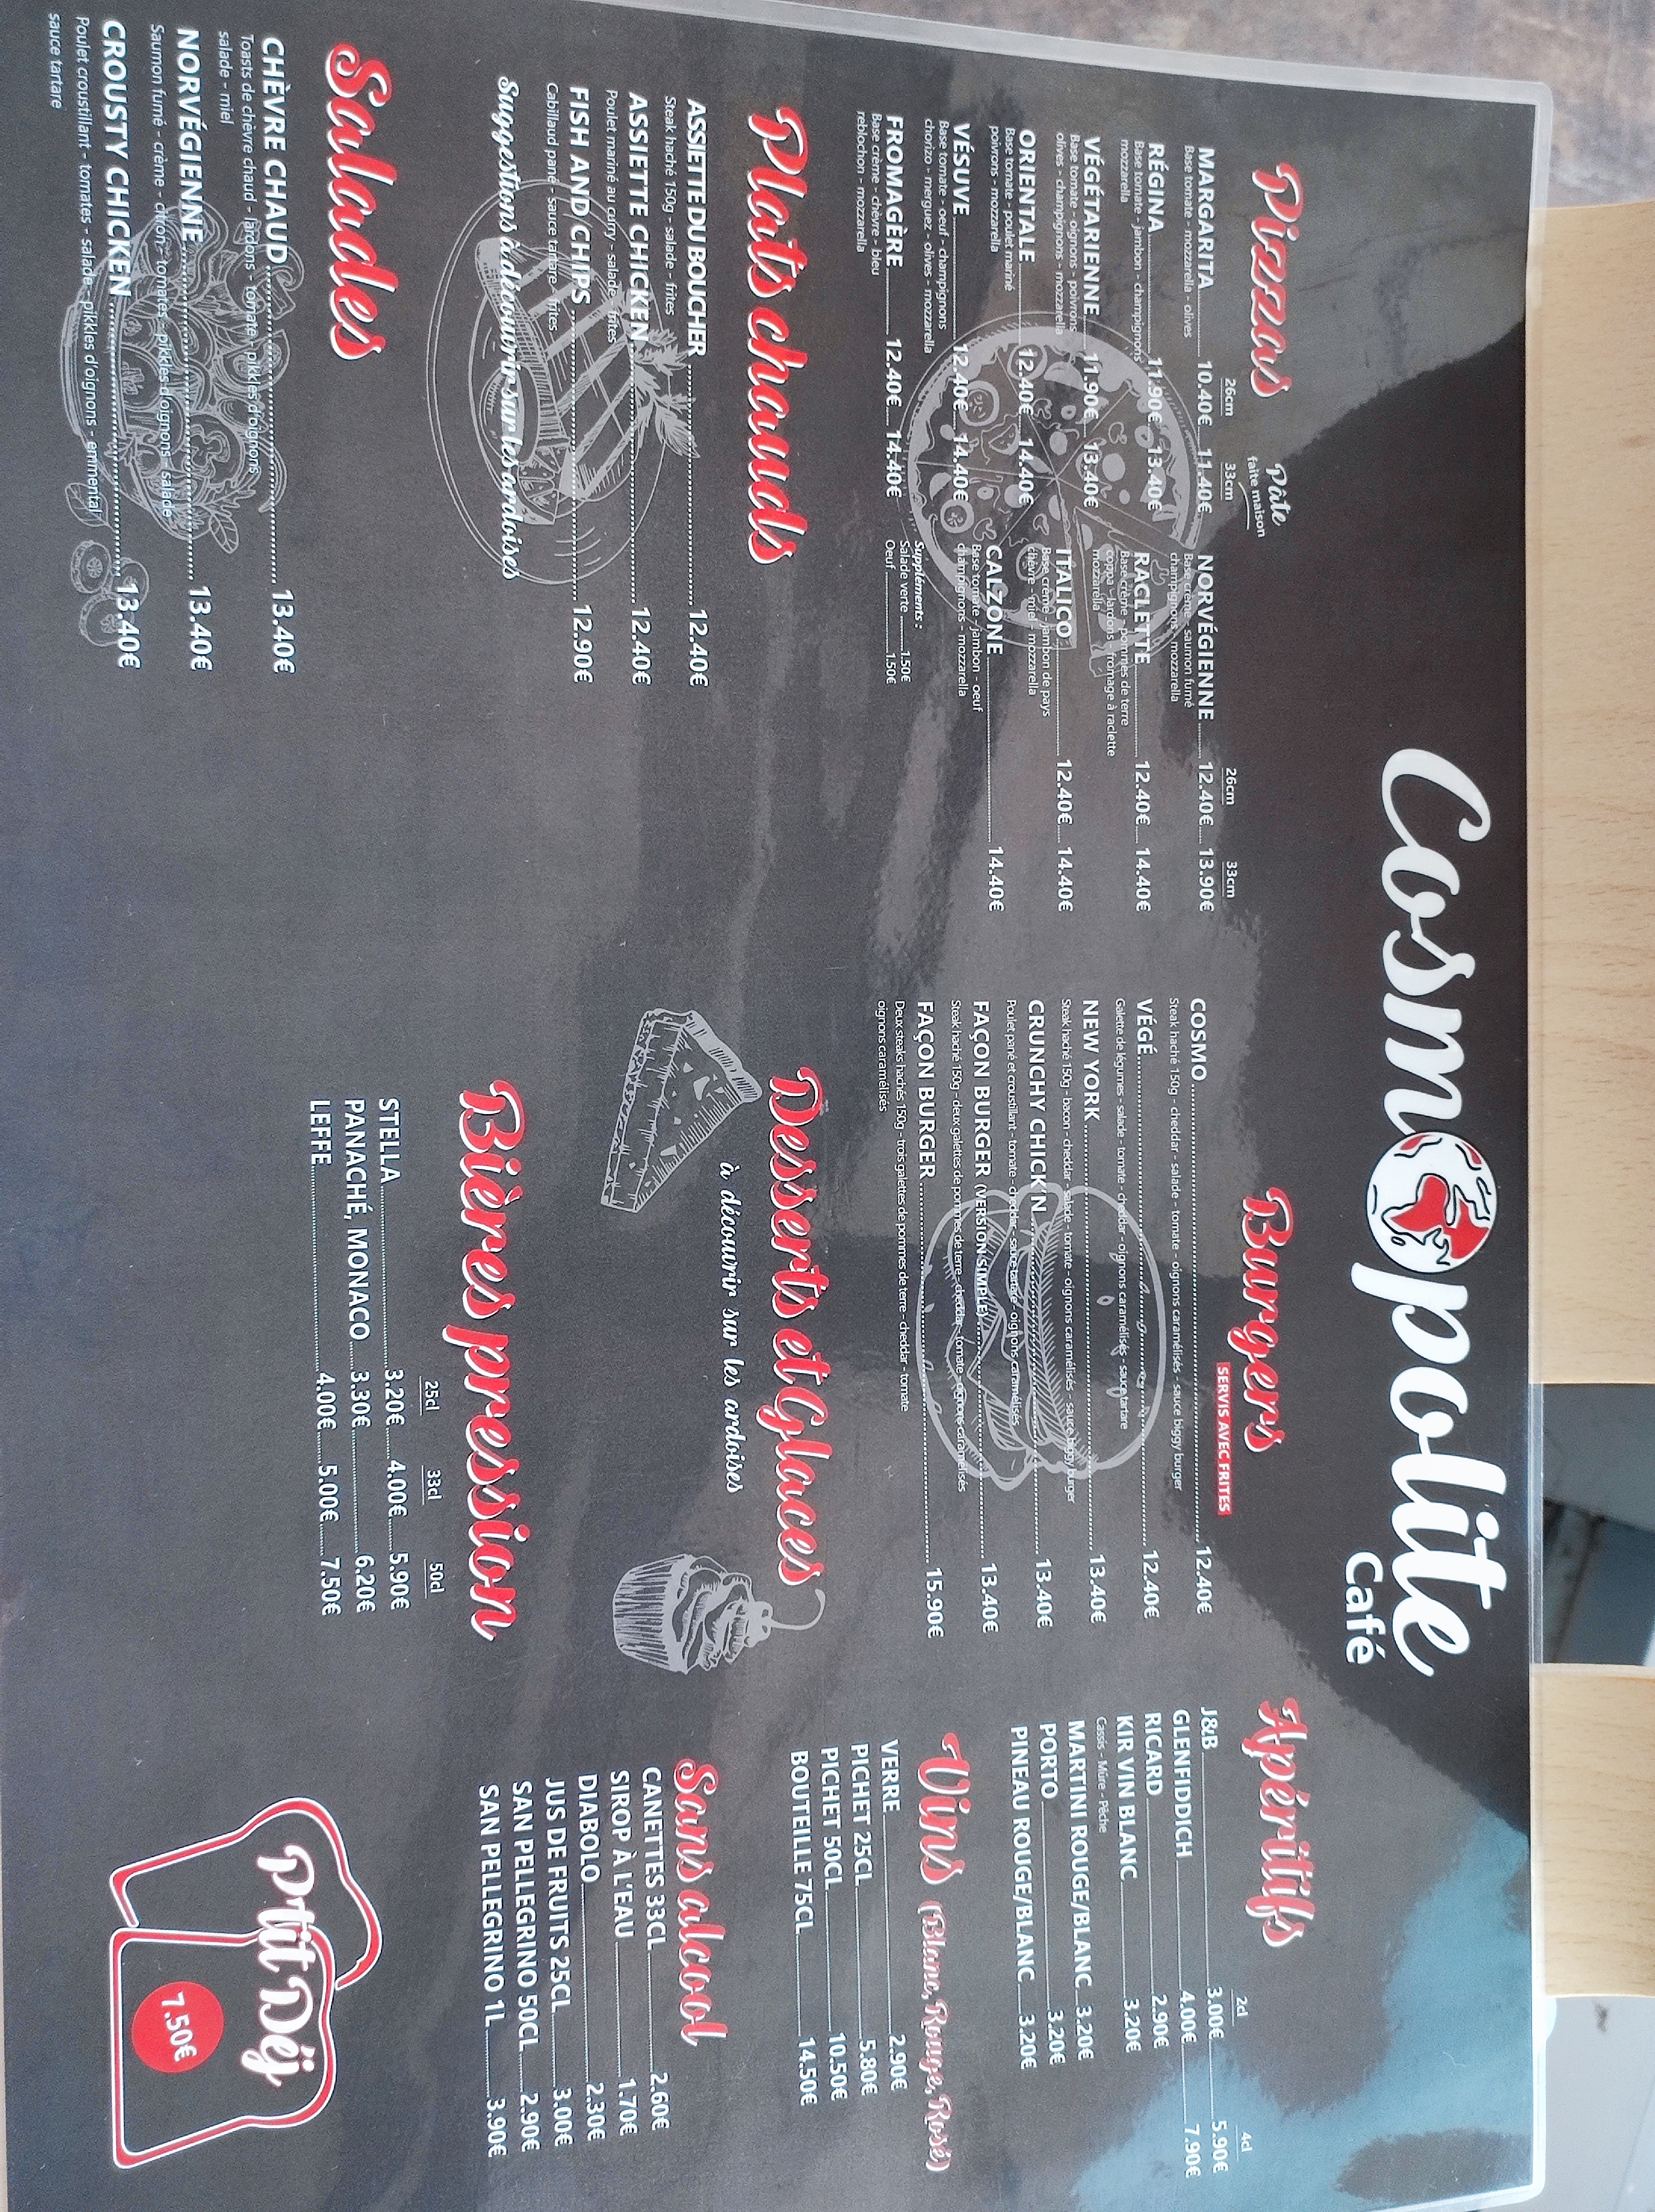 Cosmopolite
Café
Pizzas
Pâte
faite maison
26cm 33cm
MARGARITA 10.40€ 11.40€
Base tomate - mozzarella - olives
RÉGINA 11.90€ 13.40€
Base tomate - jambon - champignons
mozzarella
VÉGÉTARIENNE 11.90€ 13.40€
Base tomate - oignons - poivrons
olives - champignons - mozzarella
ORIENTALE 12.40€ 14.40€
Base tomate - poulet mariné
poivrons - mozzarella
VÉSUVE 12.40€ 14.40€
Base tomate - oeuf - champignons
chorizo - merguez - olives - mozzarella
FROMAGÈRE 12.40€ 14.40€
Base crème - chèvre - bleu
reblochon - mozzarella
26cm 33cm
NORVÉGIENNE 12.40€ 13.90€
Base crème - saumon fumé
champignons - mozzarella
RACLETTE 12.40€ 14.40€
Base crème - pommes de terre
coppa - lardons - fromage à raclette
mozzarella
ITALICO 12.40€ 14.40€
Base crème - jambon de pays
chèvre - miel - mozzarella
CALZONE 14.40€
Base tomate - jambon - oeuf
champignons - mozzarella
Suppléments :
Salade verte 1.50€
Oeuf 1.50€
Plats chauds
ASSIETTE DU BOUCHER 12.40€
Steak haché 150g - salade - frites
ASSIETTE CHICKEN 12.40€
Poulet mariné au curry - salade - frites
FISH AND CHIPS 12.90€
Cabillaud pané - sauce tartare - frites
Suggestions à découvrir sur les ardoises
Salades
CHÈVRE CHAUD 13.40€
Toasts de chèvre chaud - lardons - tomate - pikkles d'oignons
salade - miel
NORVÉGIENNE 13.40€
Saumon fumé - crème - citron - tomates - pikkles d'oignons - salade
CROUSTY CHICKEN 13.40€
Poulet croustillant - tomates - salade - pikkles d'oignons - emmental
sauce tartare
Burgers
SERVIS AVEC FRITES
COSMO 12.40€
Steak haché 150g - cheddar - salade - tomate - oignons caramélisés - sauce biggy burger
VÉGÉ 12.40€
Galette de légumes - salade - tomate - cheddar - oignons caramélisés - sauce tartare
NEW YORK 13.40€
Steak haché 150g - bacon - cheddar - salade - tomate - oignons caramélisés - sauce biggy burger
CRUNCHY CHICK'N 13.40€
Poulet pané et croustillant - tomate - cheddar - sauce tartare - oignons caramélisés
FAÇON BURGER (VERSION SIMPLE) 13.40€
Steak haché 150g - deux galettes de pommes de terre - cheddar - tomate - oignons caramélisés
FAÇON BURGER 15.90€
Deux steaks hachés 150g - trois galettes de pommes de terre - cheddar - tomate
oignons caramélisés
Desserts et Glaces
à découvrir sur les ardoises
Bières pression
25cl 33cl 50cl
STELLA 3.20€ 4.00€ 5.90€
PANACHÉ, MONACO 3.30€ 6.20€
LEFFE 4.00€ 5.00€ 7.50€
Apéritifs
2cl 4cl
J&B 3.00€ 5.90€
GLENFIDDICH 4.00€ 7.90€
RICARD 2.90€
KIR VIN BLANC 3.20€
Cassis - Mûre - Pêche
MARTINI ROUGE/BLANC 3.20€
PORTO 3.20€
PINEAU ROUGE/BLANC 3.20€
Vins (Blanc, Rouge, Rosé)
VERRE 2.90€
PICHET 25CL 5.80€
PICHET 50CL 10.50€
BOUTEILLE 75CL 14.50€
Sans alcool
CANETTES 33CL 2.60€
SIROP À L'EAU 1.70€
DIABOLO 2.30€
JUS DE FRUITS 25CL 3.00€
SAN PELLEGRINO 50CL 2.90€
SAN PELLEGRINO 1L 3.90€
P'tit Déj
7.50€